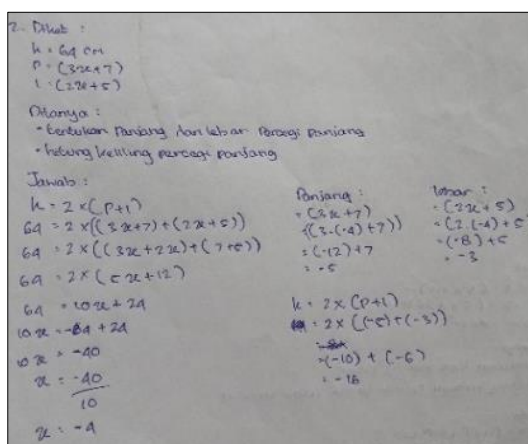 2. Diket :
k = 64 cm
P = (3x+7)
l = (2x+5)
Ditanya :
• tentukan panjang dan lebar persegi panjang
• hitung keliling persegi panjang
Jawab :
k = 2 × (P+l)
64 = 2 × ((3x+7) + (2x+5))
64 = 2 × ((3x+2x) + (7+5))
64 = 2 × (5x+12)
64 = 10x + 24
10x = -64 + 24
10x = -40
x = -40
10
x = -4
Panjang :
= (3x+7)
= (3.(-4)+7))
= (-12)+7
= -5
k = 2 × (P+l)
= 2 × ((-5)+(-3))
= (-10) + (-6)
= -16
lebar :
= (2x+5)
= (2.(-4)+5
= (-8)+5
= -3